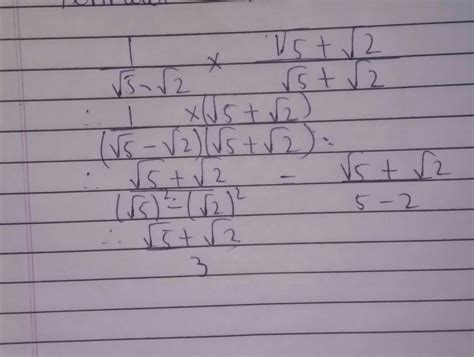 1/(√5-√2) × (√5+√2)/(√5+√2)
∴ 1×(√5+√2)/(√5-√2)(√5+√2) .
∴ (√5+√2)/((√5)²-(√2)²) - (√5+√2)/(5-2)
∴ (√5+√2)/3